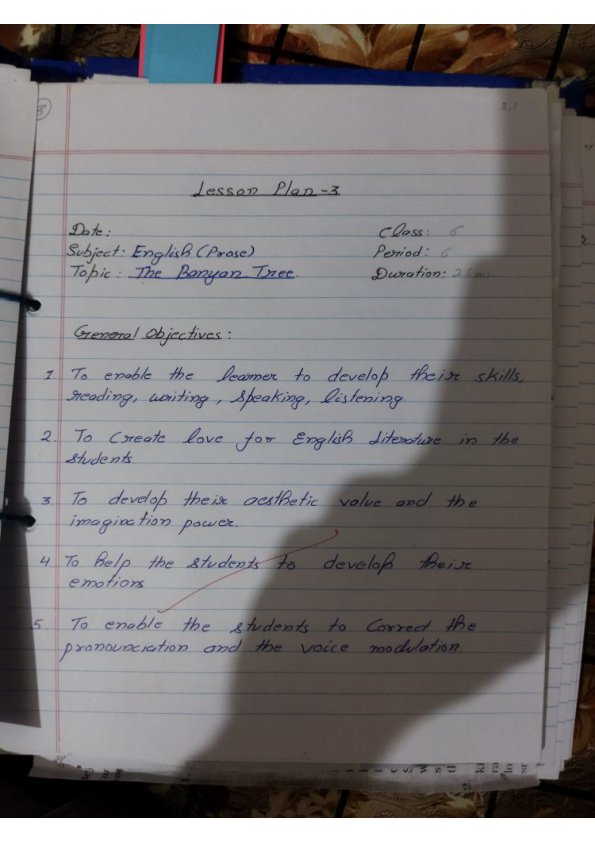 3
3,1
Lesson Plan-3
Date: Class: 6
Subject: English (Prose) Period: 6
Topic: The Banyan Tree. Duration:
General Objectives:
1. To enable the learner to develop their skills,
reading, writing, speaking, listening
2. To create love for English Literature in the
students.
3. To develop their aesthetic value and the
imagination power.
4 To help the students to develop their
emotions
5. To enable the students to correct the
pronounciation and the voice modulation